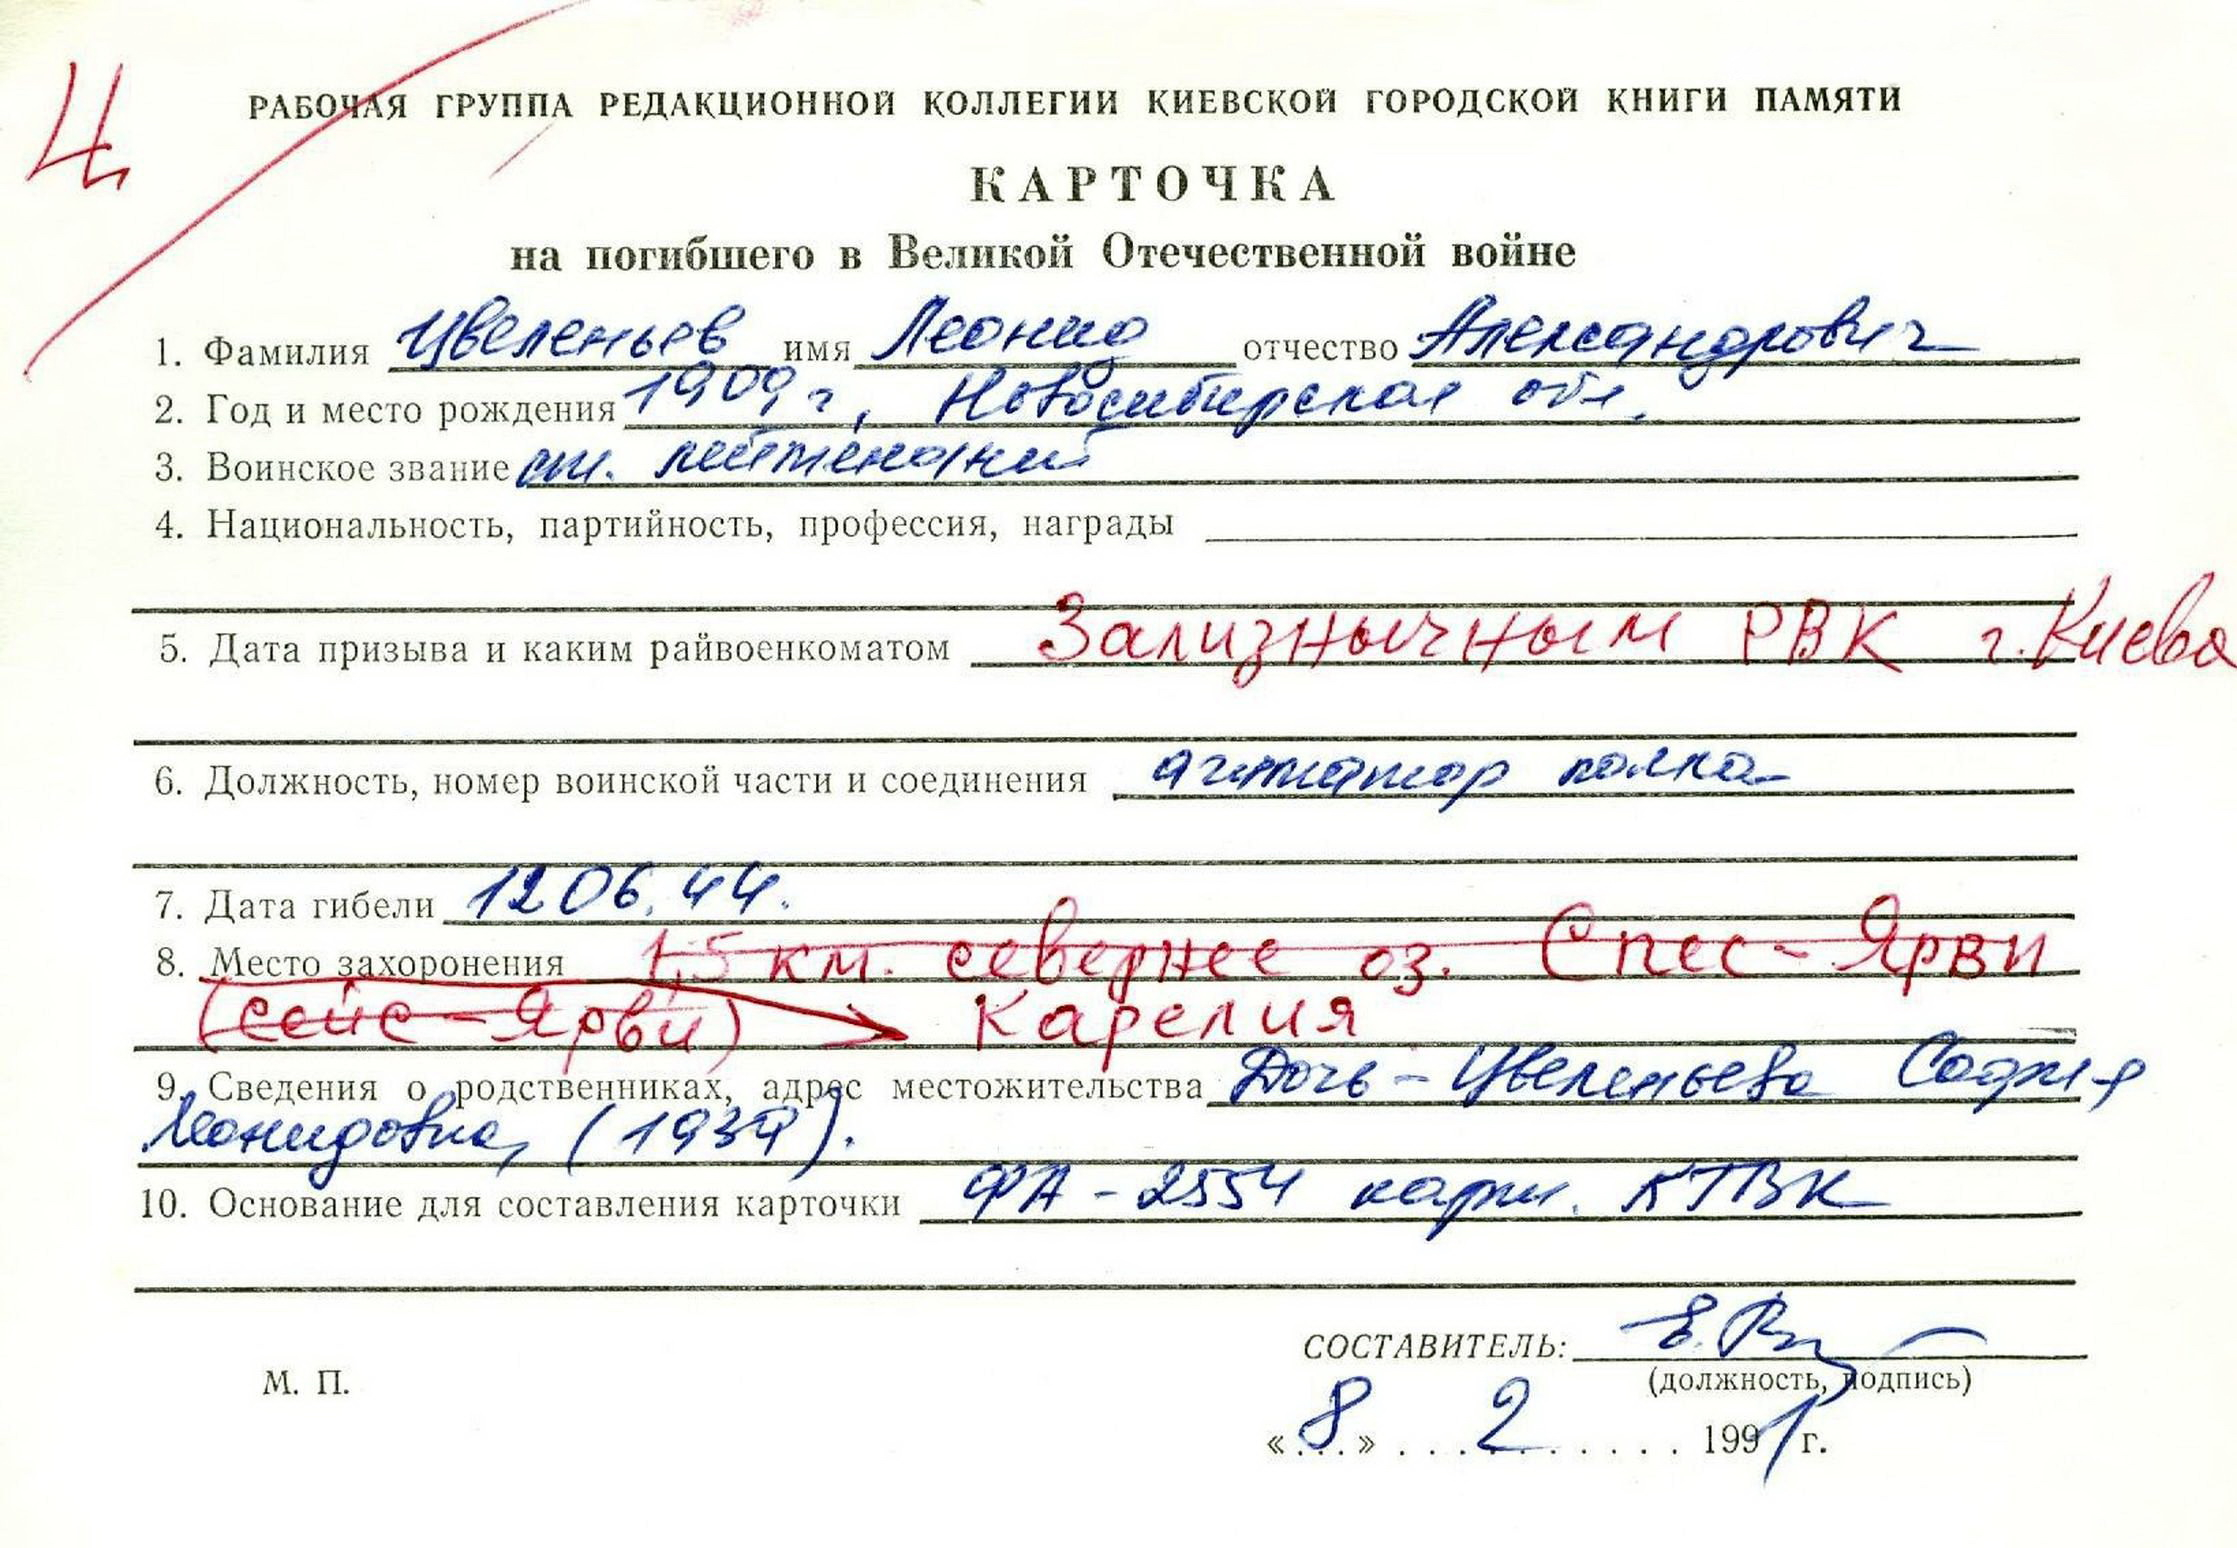 Ц
РАБОЧАЯ ГРУППА РЕДАКЦИОННОЙ КОЛЛЕГИИ КИЕВСКОЙ ГОРОДСКОЙ КНИГИ ПАМЯТИ
КАРТОЧКА
на погибшего в Великой Отечественной войне
1. Фамилия Цвеленьев имя Леонид отчество Александрович
2. Год и место рождения 1909 г, Новосибирская обл.
3. Воинское звание ст. лейтенант
4. Национальность, партийность, профессия, награды
5. Дата призыва и каким райвоенкоматом Зализнычным РВК г. Киева
6. Должность, номер воинской части и соединения агитатор полка
7. Дата гибели 12 06. 44.
8. Место захоронения 1,5 км. севернее оз. Спес-Ярви
(Сейс-Ярви) Карелия
9. Сведения о родственниках, адрес местожительства Дочь - Цвеленьева София
Леонидовна, (1939).
10. Основание для составления карточки ФА - 2554 карт. КТВК
СОСТАВИТЕЛЬ:
М. П. (должность, подпись)
«8» 2 1991 г.